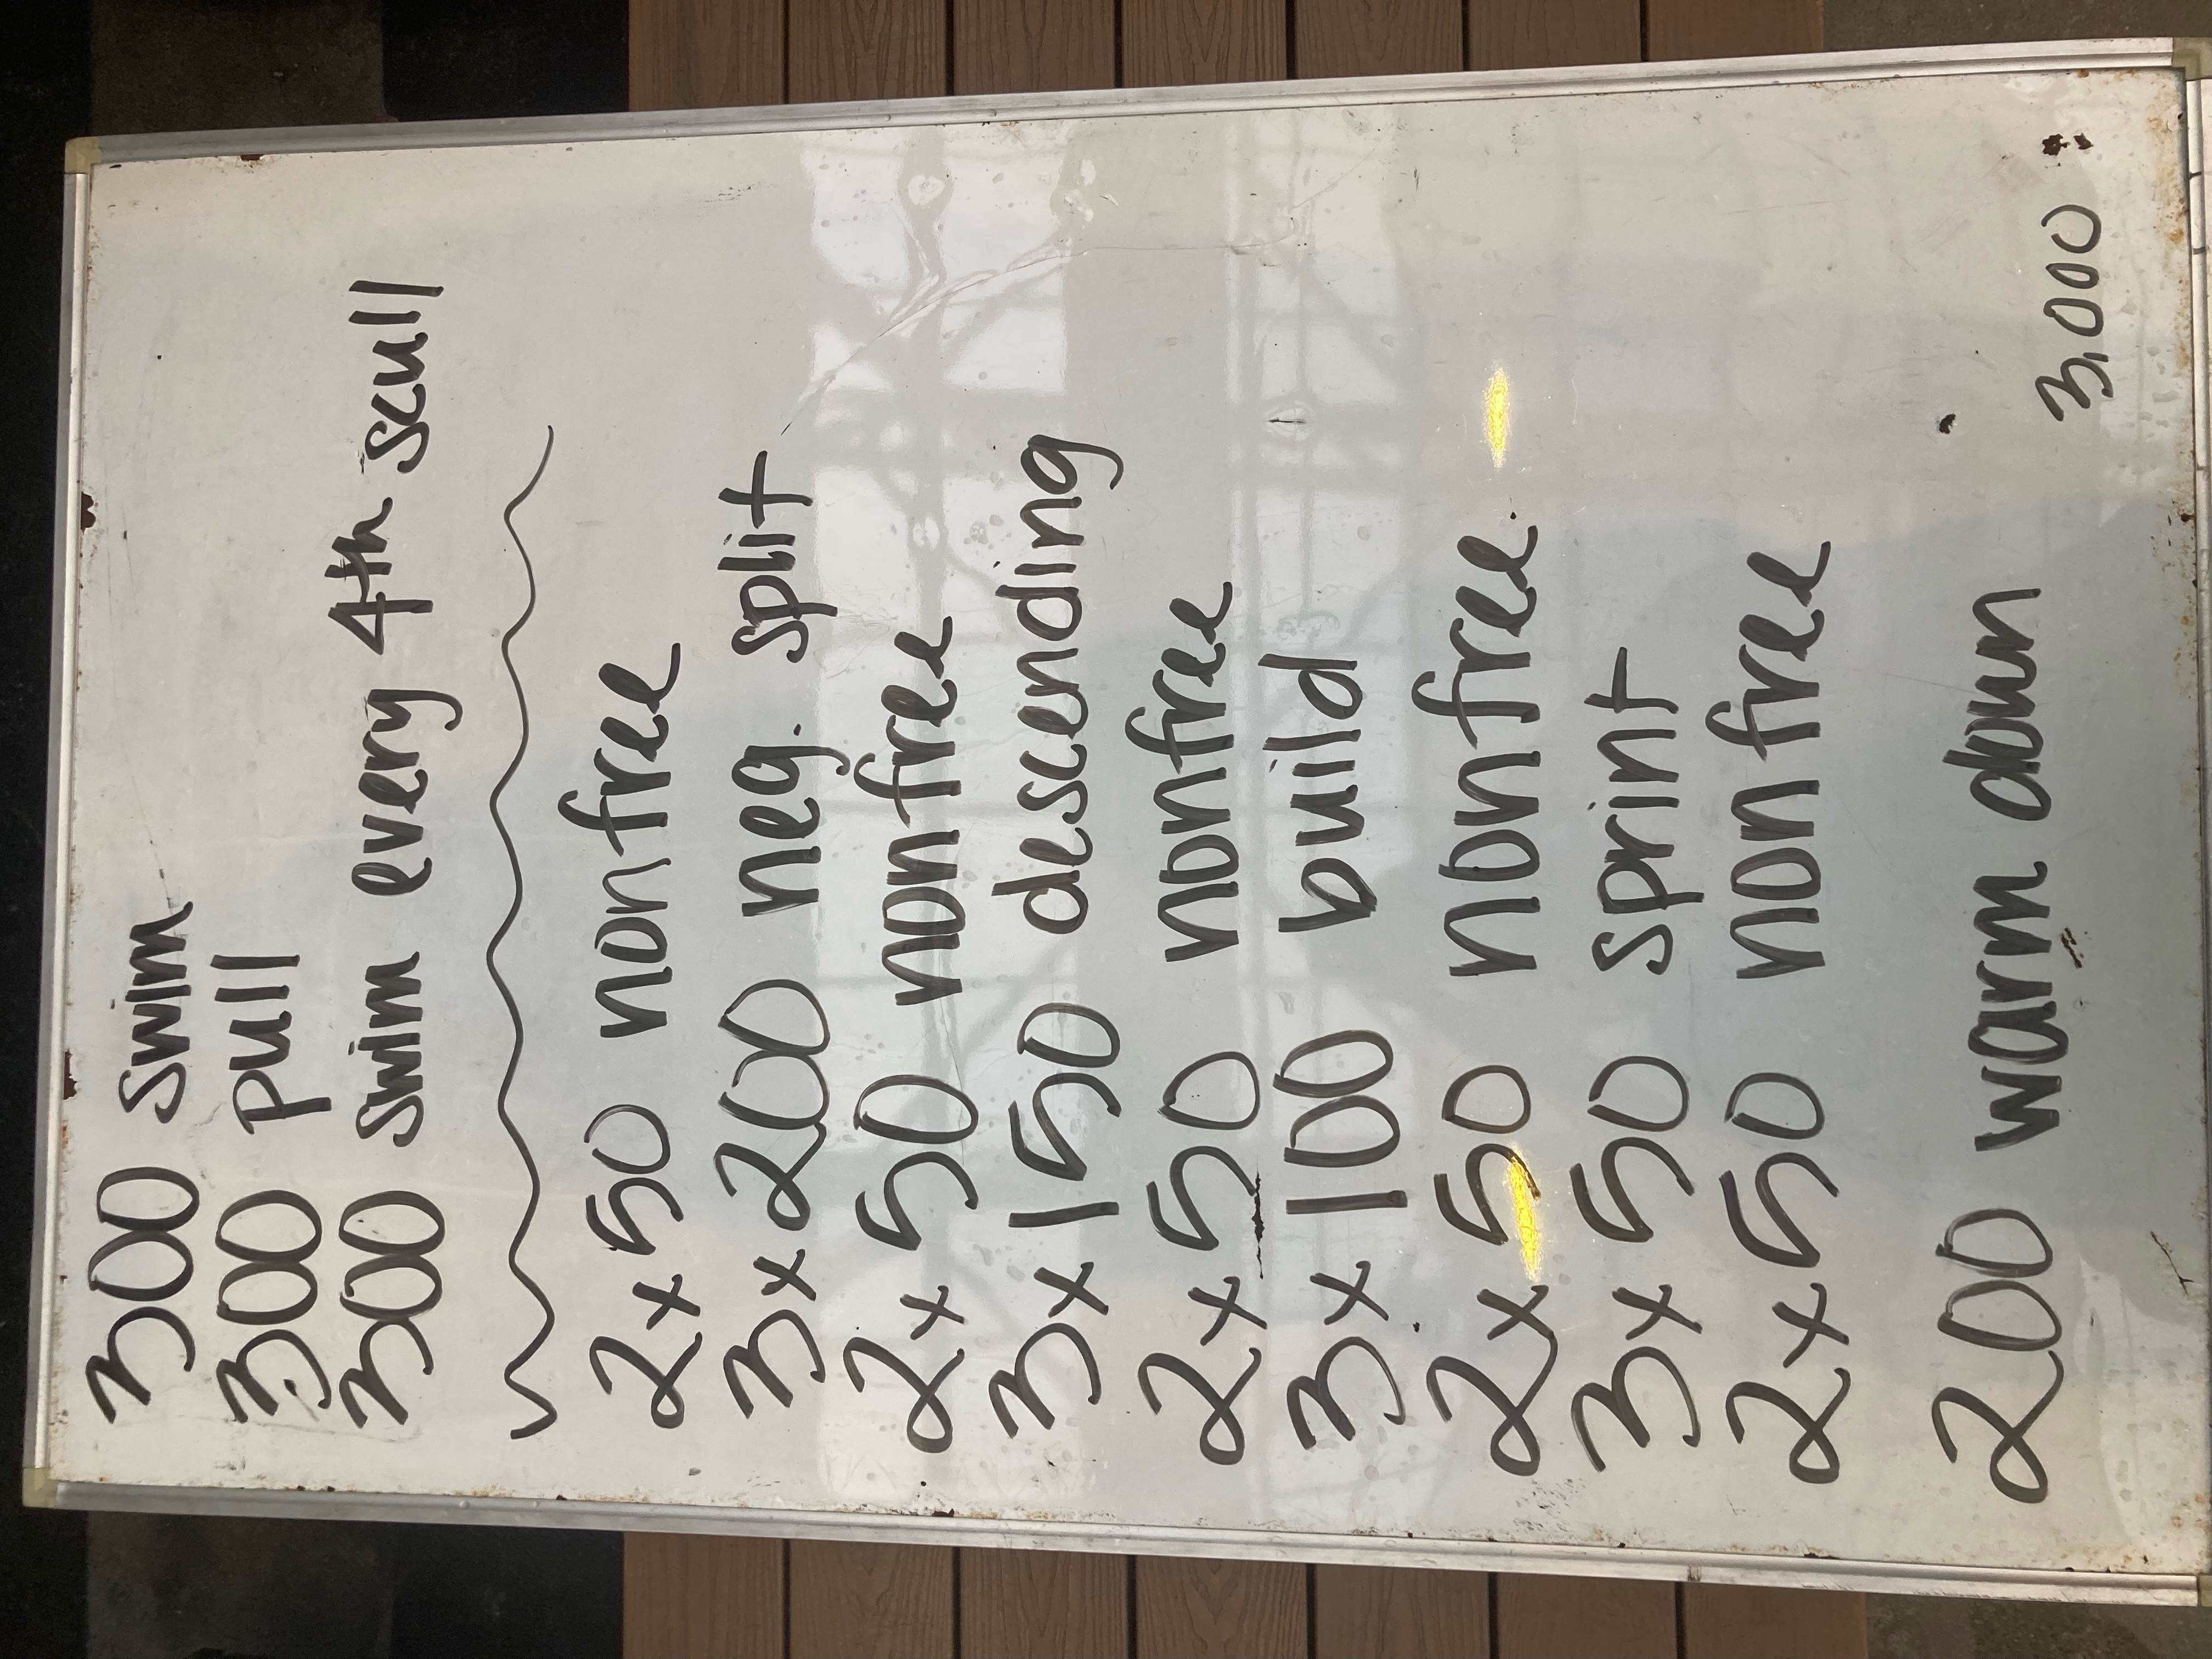 300 swim
300 pull
300 swim every 4th scull
2x50 nonfree
3x200 neg. split
2x50 nonfree
3x150 descending
2x50 nonfree
3x100 build
2x50 nonfree
3x50 sprint
2x50 nonfree
200 warm down
3,000